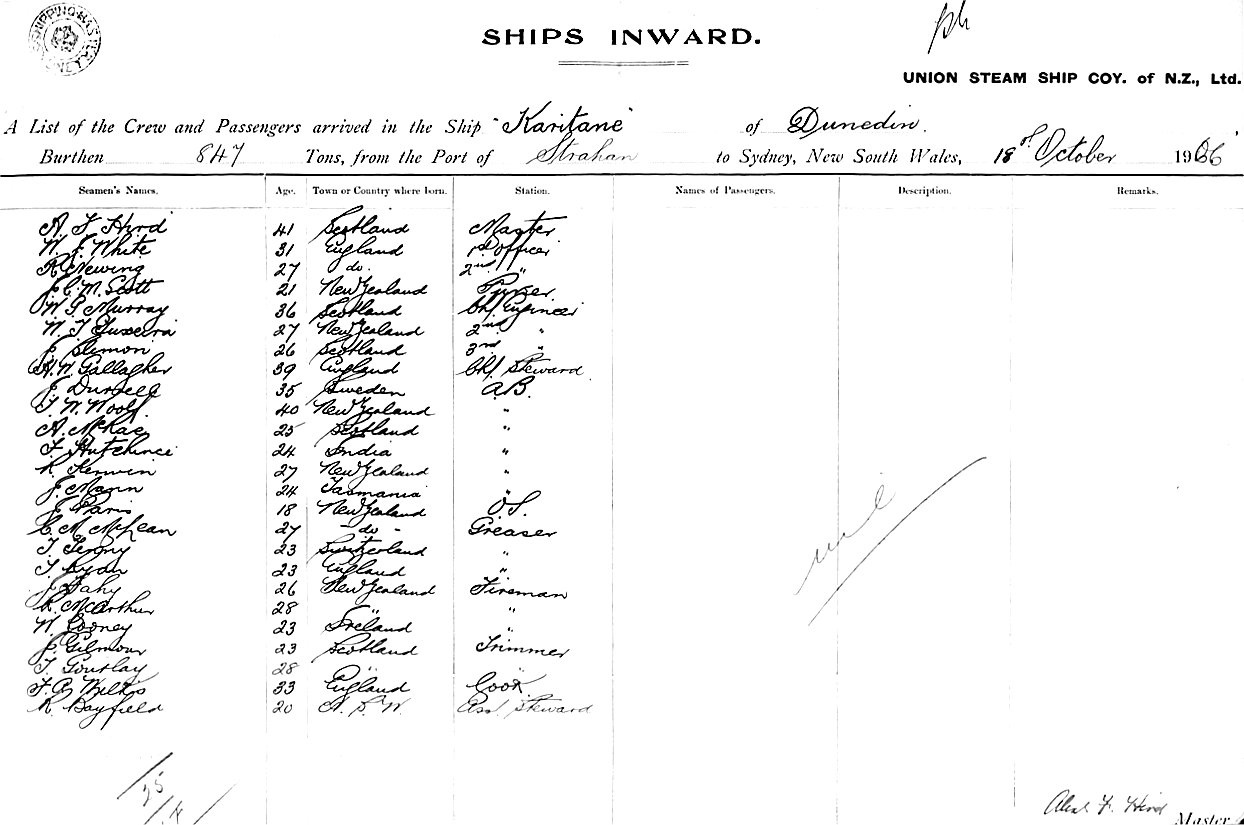 SHIPPING MASTER
SYDNEY
SHIPS INWARD.
UNION STEAM SHIP COY. of N.Z., Ltd.
A List of the Crew and Passengers arrived in the Ship "Karitane" of Dunedin.
Burthen 847 Tons, from the Port of Strahan to Sydney, New South Wales, 18 of October 1906
Seamen's Names. Age. Town or Country where born. Station. Names of Passengers. Description. Remarks.
A. F. Hird 41 Scotland Master
W. J. White 31 England 1st Officer
R. Newing 27 do. 2nd "
J C. M. Scott 21 New Zealand Purser
W. G. Murray 36 Scotland Chf. Engineer
W. J. 27 New Zealand 2nd "
J. Slimon 26 Scotland 3rd "
A. W. Gallagher 39 England Chf. Steward
J. 35 Sweden A.B.
J. W. Woolf. 40 New Zealand "
A. McRae 25 Scotland "
F. Hutchince 24 India "
R. Kerwin 27 New Zealand "
J. Mann 24 Tasmania "
J. Paris 18 New Zealand O.S.
C. M. McLean 27 - do - Greaser
23 Switzerland "
T. Ryan 23 England "
J. Fahy 26 New Zealand Fireman
R. McArthur 28 " "
W. Cooney 23 Ireland "
J. Gilmour 23 Scotland Trimmer
T. Gourlay 28 "
F. A. Wilkis 33 England Cook.
R. Bayfield 20 N. S. W. Asst. Steward
nil
25
Alex F. Hird Master